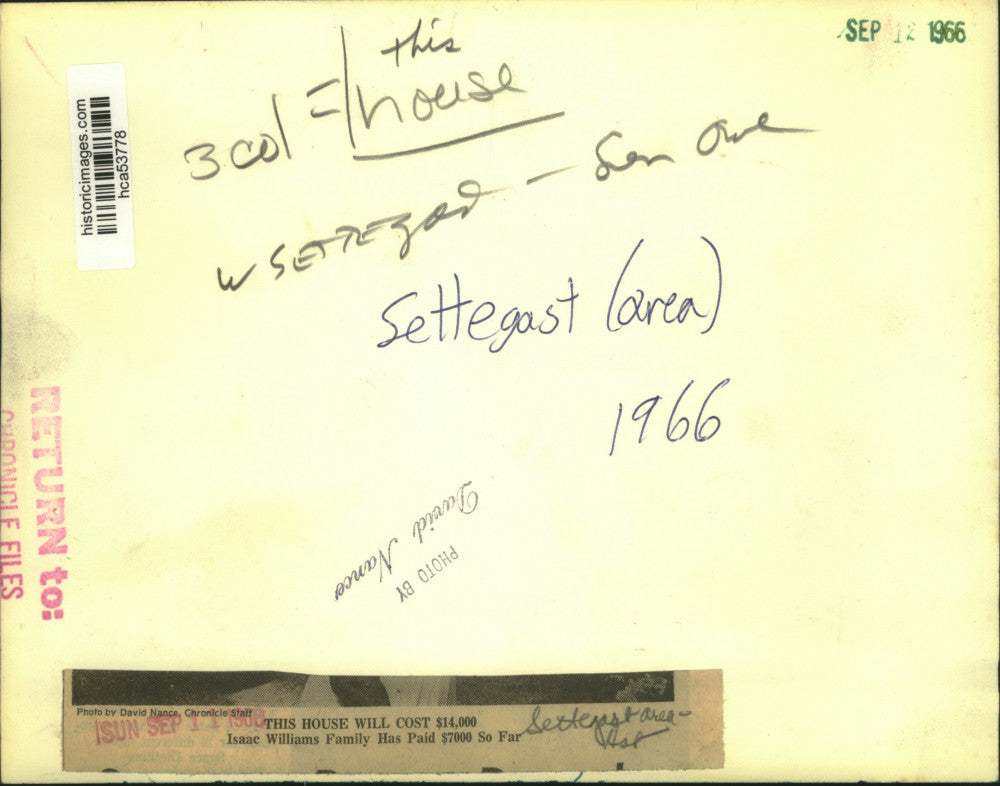 SEP 12 1966
this
3 col = house
historicimages.com
hca53778
W SETTEGAST -
Settegast (area)
1966
RETURN to:
CHRONICLE FILES
PHOTO BY
David Nance
Photo by David Nance, Chronicle Staff
SUN SEP 11
THIS HOUSE WILL COST $14,000
Isaac Williams Family Has Paid $7000 So Far
Settegast area-